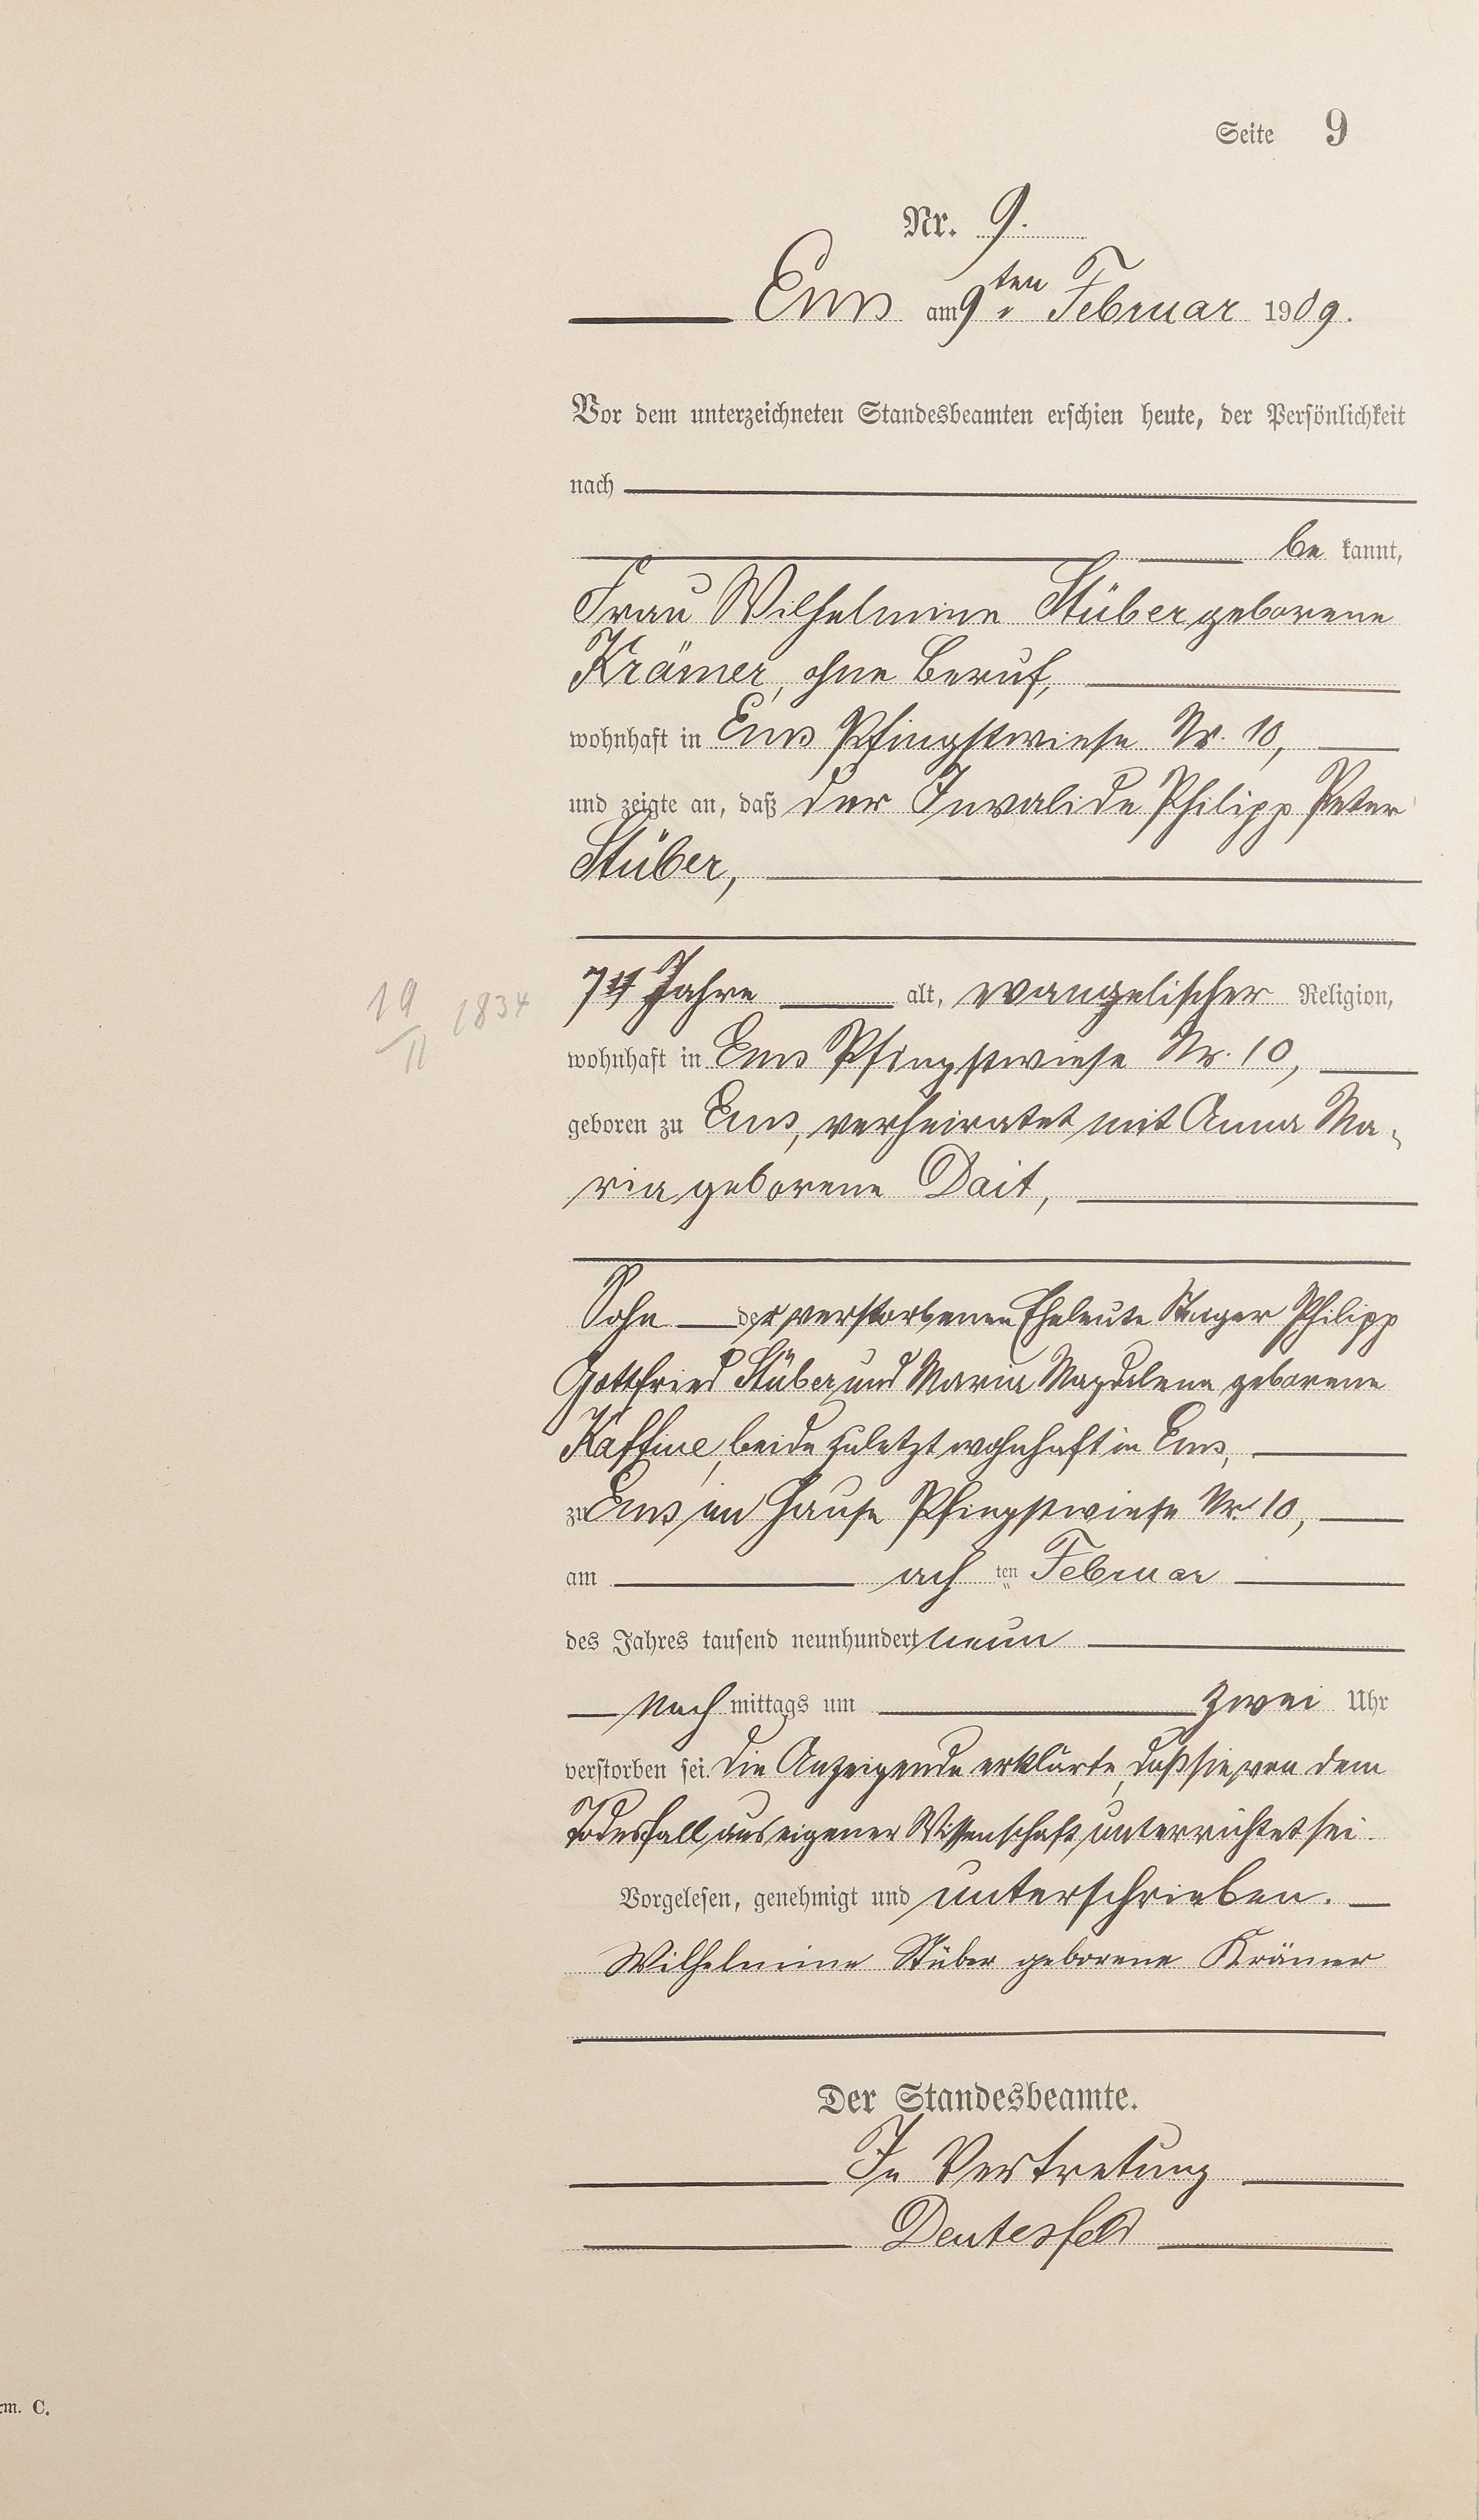 Seite 9
Nr. 9.
Ems am 9ten Februar 1909.
Vor dem unterzeichneten Standesbeamten erschien heute, der Persönlichkeit
nach
be kannt,
Frau Wilhelmine Stüber geborene
Krämer, ohne Beruf,
wohnhaft in Ems Pfingstwiese Nr. 10,
und zeigte an, daß der Invalide Philipp Peter
Stüber,
74 Jahre alt, evangelischer Religion,
19/II 1834
wohnhaft in Ems Pfingstwiese Nr. 10,
geboren zu Ems, verheiratet mit Anna Ma-
ria geborene Dait,
Sohn der verstorbenen Eheleute Philipp
Gottfried Stüber und Maria Magdalena geborene
Kaffine, beide zuletzt wohnhaft in Ems,
zu Ems im Hause Pfingstwiese Nr. 10,
am ach ten Februar
des Jahres tausend neunhundert neun
Nach mittags um zwei Uhr
verstorben sei. Die Anzeigende erklärte, daß sie von dem
Todesfall aus eigener Wissenschaft unterrichtet sei.
Vorgelesen, genehmigt und unterschrieben.
Wilhelmine Stüber geborene Krämer
Der Standesbeamte.
In Vertretung
Deutesfeld
rm. C.